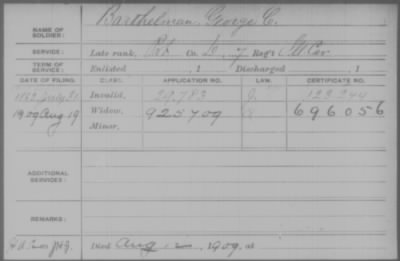 NAME OF SOLDIER: Barthelman, George C.
SERVICE: Late rank, Pvt Co. L, 7 Reg't Ill Cav
TERM OF SERVICE: Enlisted , 1 Discharged , 1
DATE OF FILING. CLASS. APPLICATION NO. LAW. CERTIFICATE NO.
July 21 Invalid, 29,783 123,244
1909 Aug 19 Widow, 925709 696056
Minor,
ADDITIONAL SERVICES:
REMARKS:
Died Aug , 1909, at